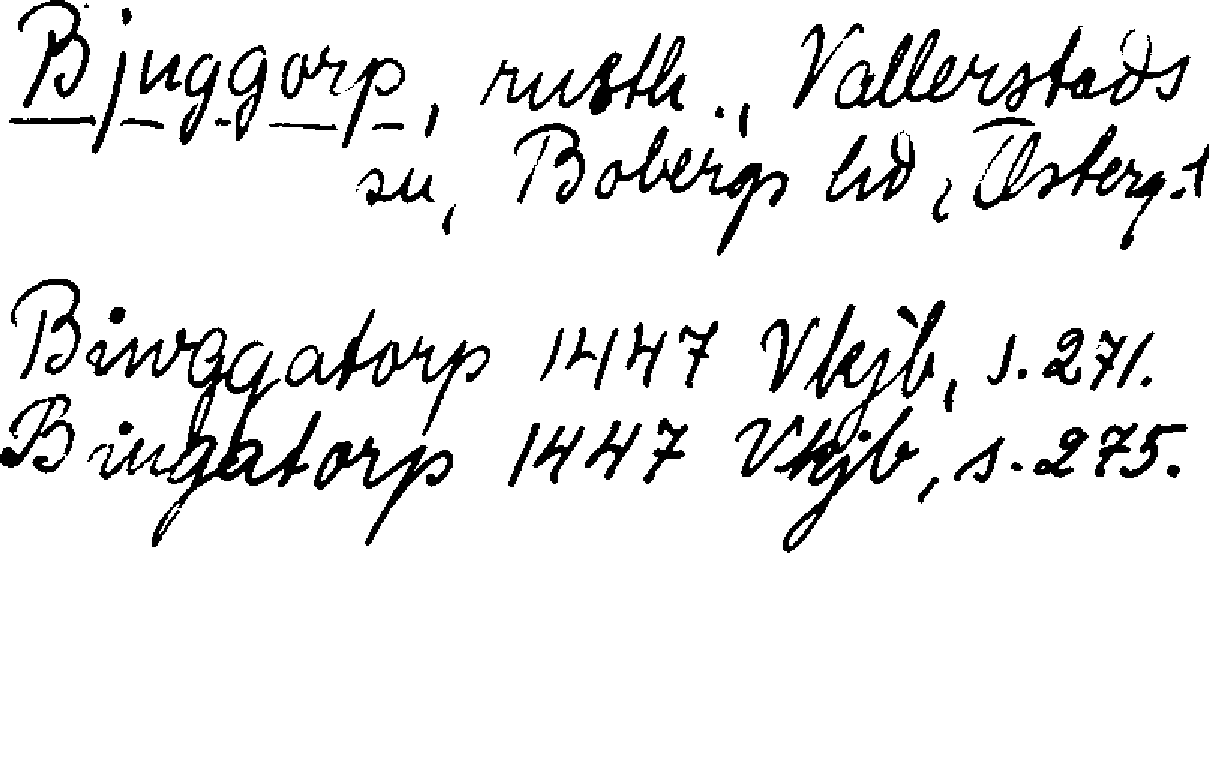 Bjuggorp, rusth., Vallerstads
sn, Bobergs hd, Österg.
Biwggatorp 1447 Vkjb, s. 271.
Biugatorp 1447 Vkjb, s. 275.